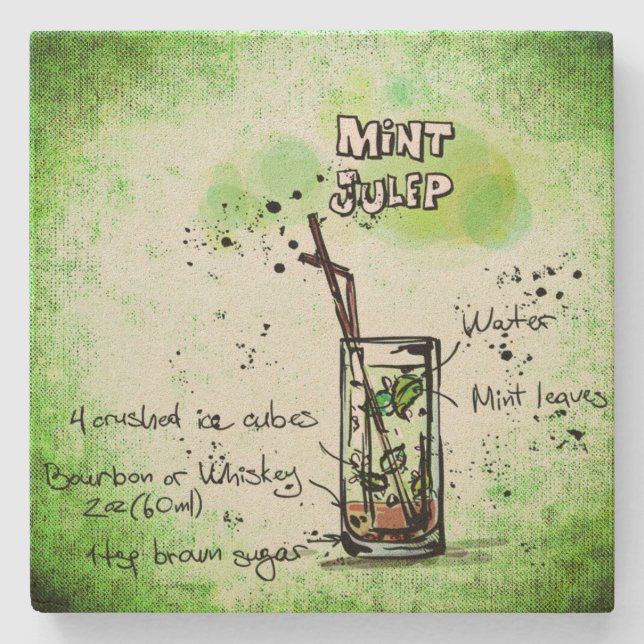 MiNT
JULEP
Water
Mint leaves
4 crushed ice cubes
Bourbon or Whiskey
2oz(60ml)
1tsp brown sugar